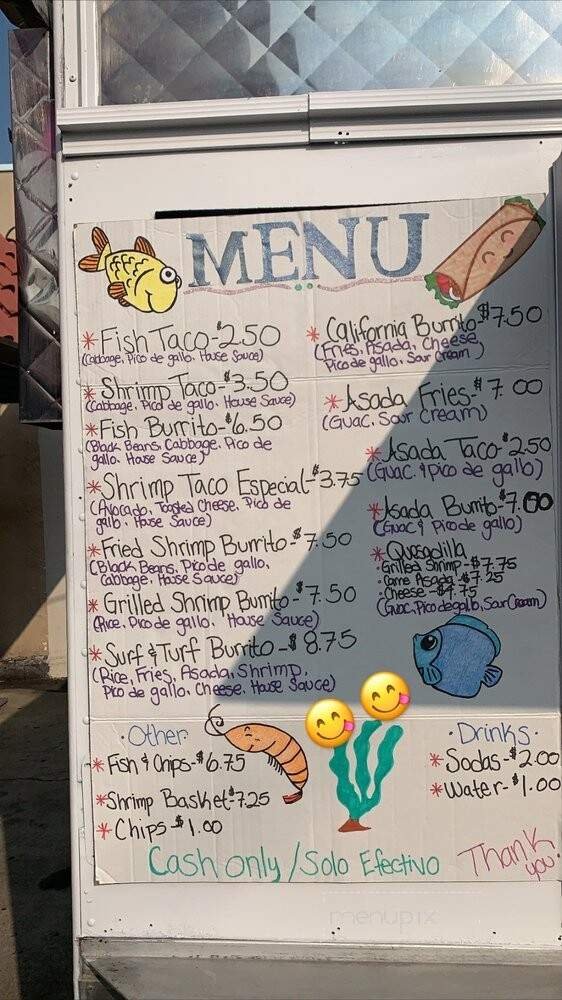 MENU
* Fish Taco-$2.50
(Cabbage, Pico de gallo, House Sauce)
* Shrimp Taco-$3.50
(Cabbage, Pico de gallo, House Sauce)
* Fish Burrito-$6.50
(Black Beans, Cabbage, Pico de
gallo, House Sauce)
* Shrimp Taco Especial-$3.75
(Avocado, Toasted Cheese, Pico de
gallo, House Sauce)
* Fried Shrimp Burrito-$7.50
(Black Beans, Pico de gallo,
Cabbage, House Sauce)
* Grilled Shrimp Burrito-$7.50
(Rice, Pico de gallo, House Sauce)
* Surf & Turf Burrito-$8.75
(Rice, Fries, Asada, Shrimp,
Pico de gallo, Cheese, House Sauce)
* California Burrito-$7.50
(Fries, Asada, Cheese,
Pico de gallo, Sour Cream)
* Asada Fries-$7.00
(Guac, Sour Cream)
* Asada Taco-$2.50
(Guac & Pico de gallo)
* Asada Burrito-$7.00
(Guac & Pico de gallo)
* Quesadilla
• Grilled Shrimp-$7.75
• Carne Asada-$7.25
• Cheese-$4.75
(Guac, Pico de gallo, Sour Cream)
• Other
* Fish & Chips-$6.75
* Shrimp Basket-$7.25
* Chips-$1.00
• Drinks •
* Sodas-$2.00
* Water-$1.00
Cash only / Solo Efectivo
Thank
you
menupix